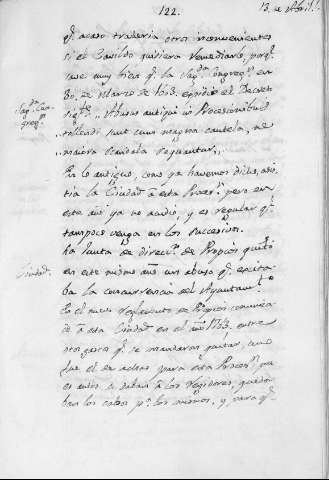 122.
13. de Abril.
q.e acaso traheria otros inconvenientes
si el Cavildo quisiera remediarlo, porq.e
sabe muy bien q.e la Sag.da Congreg.n en
30. de Marzo de 1613. expidio el Decreto
Sag.da Con-
greg.n
sig.te „ Abusus antiqui in Procesionibus
tollendi sunt cum magna cautela, ne
maiora scandala sequantur.„
En lo antiguo, como ya havemos dicho, asis-
tia la Ciudad a esta Proces.n pero en
este año ya no asistio, y es regular q.e
tampoco venga en los succesivos.
Ciudad.
La Junta de direcc.n de Propios quitó
en este mismo año un abuso q.e
ba la concurrencia del Ayuntam.to
En el nuevo reglamento de Propios comunica-
do a esta Ciudad en el año 1763. entre
otros gastos q.e se mandaron quitar, uno
fue el de achas para esta Proces.n pu-
es antes se daban a los Regidores, queda-
ban los cabos p.a los mismos, y para q.e